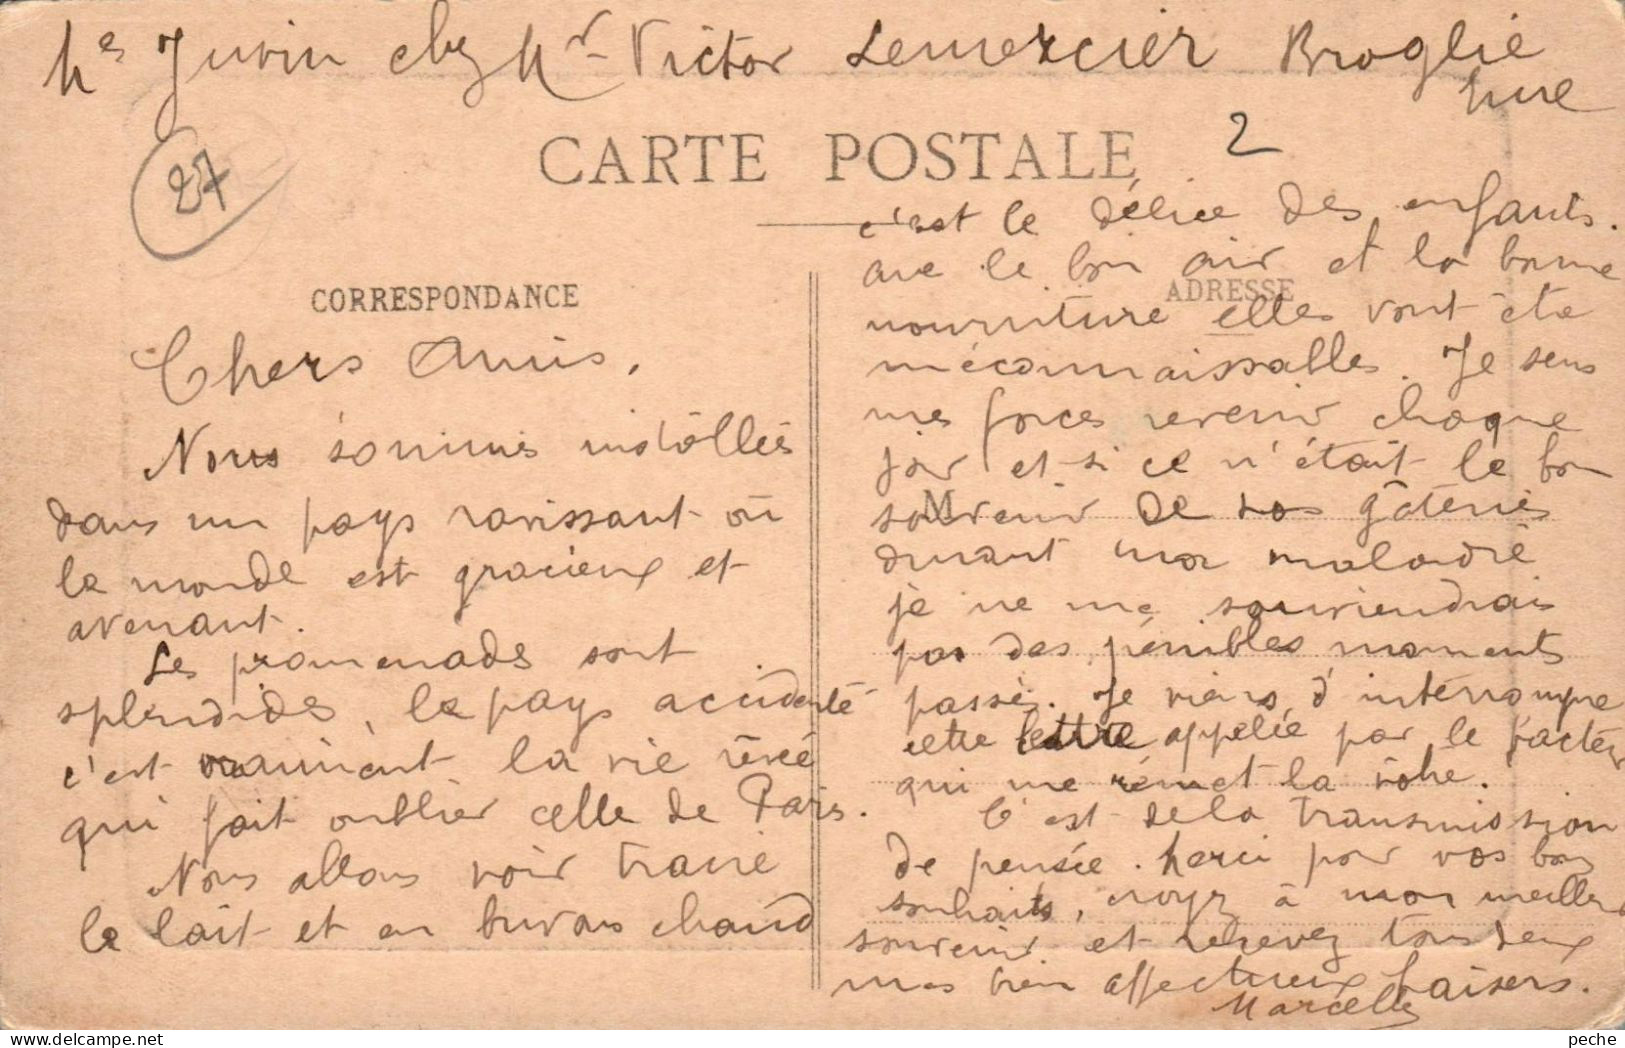 Me Juvin chez Mr Victor Lemercier Broglie
Eure
2
27
CARTE POSTALE
CORRESPONDANCE
ADRESSE
M
Chers Amis,
Nous sommes installées
dans un pays ravissant où
le monde est gracieux et
avenant.
Les promenades sont
splendides, le pays accidenté
c'est vraiment la vie rêvée
qui fait oublier celle de Paris.
Nous allons voir traire
le lait et en buvons chaud
c'est le délice des enfants.
avec le bon air et la bonne
nourriture elles vont être
méconnaissables. Je sens
mes forces revenir chaque
jour et si ce n'était le bon
souvenir de vos gâteries
durant ma maladie
je ne me souviendrais
pas des pénibles moments
passés. Je viens d'interrompre
cette lettre appelée par le facteur
qui me remet la vôtre.
C'est de la transmission
de pensée. Merci pour vos bons
souhaits, croyez à mon meilleur
souvenir et recevez tous deux
mes bien affectueux baisers.
Marcelle
delcampe.net
peche